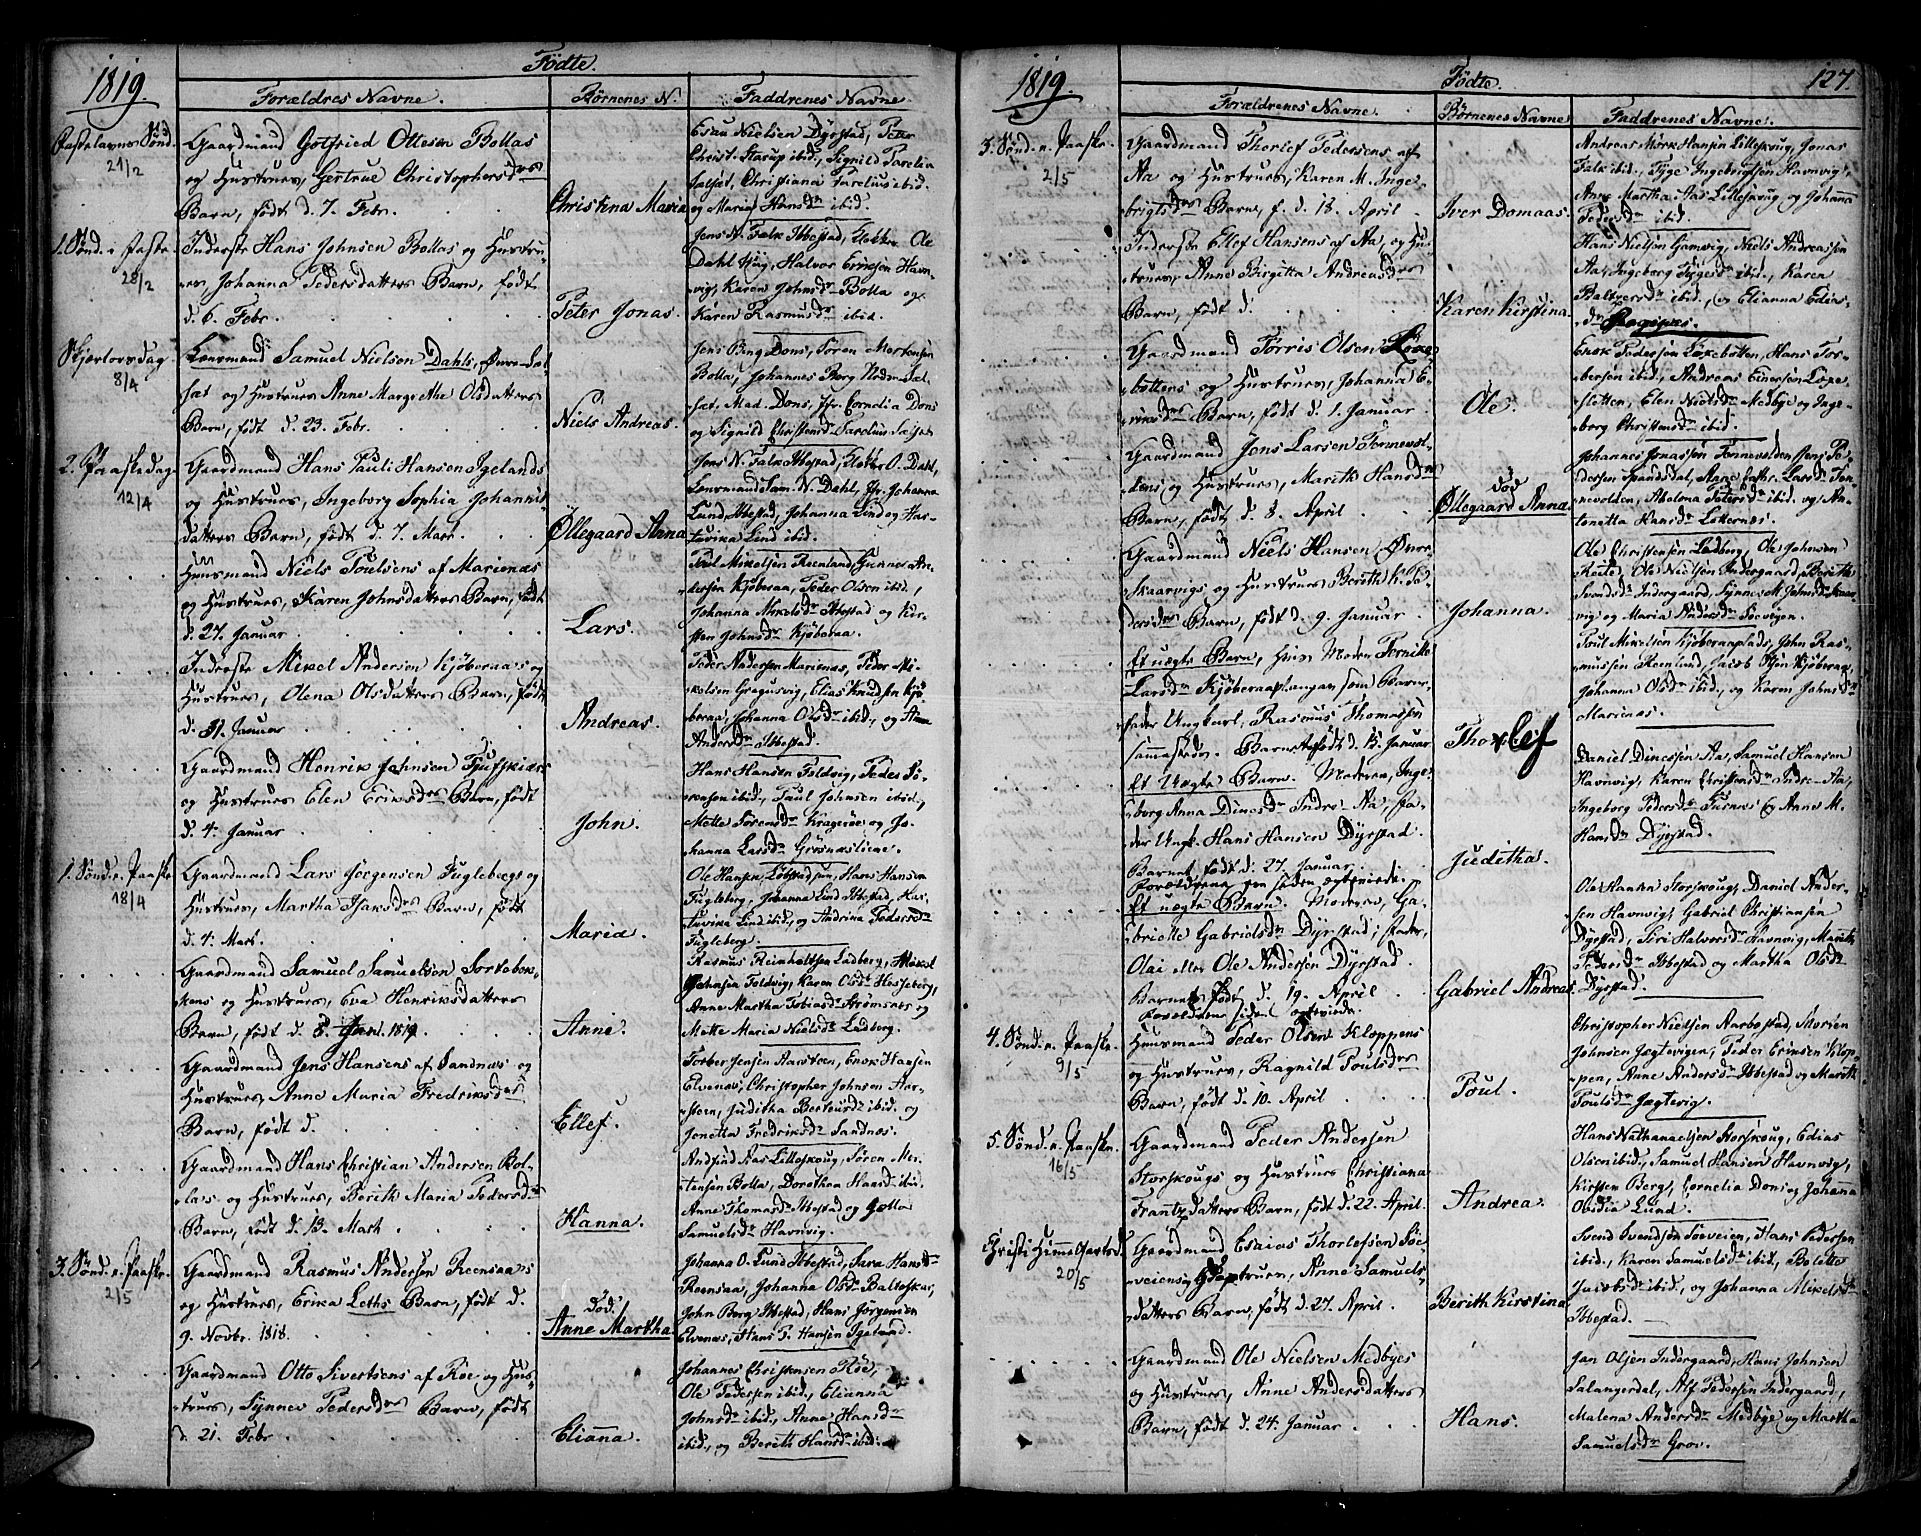 1819.
Födte.
Forældres Navne.
Börnenes N.
Faddrenes Navne
Fastelavns Sönd.
21/2
Gaardmand Gotfried Ottesen Bollas
og Hustrues, Gertrue Christophersdrs
Barn, födt d. 7. Febr.
Christina Maria
Esau Nielsen Dyrstad, Peter
Christ. Starup ibid., Signild
Christiana ibid.
og Maria Hansdr ibid.
1. Sönd. i Faste
28/2
Inderste Hans Johnsen Bollas og Hustru-
es, Johanna Pedersdatters Barn, födt
d. 6. Febr.
Peter Jonas.
Jens N. Falk Ibbestad, Klokker Ole
Dahl ibid., Halvor Eriksen Havn-
vig, Karen Johnsdr Bolla og
Karen Rasmusdr ibid.
Skjertorsdag
8/4
Lensmand Samuel Nielsen Dahls,
og Hustrues Anne Margrethe Olsdatters
Barn, födt d. 23. Febr.
Niels Andreas.
Jens Bing Dons, Sören Mortensen
Bolla, Johannes Berg
Mad. Dons, Jfr. Cornelia Dons
og Signild Christensd.
2. Paaskedag
12/4
Gaardmand Hans Pauli Hansen Igelands
og Hustrues, Ingeborg Sophia Johannis-
datters Barn, födt d. 7. Mart.
Öllegaard Anna
Jens N. Falk Ibbestad, Klokker O. Dahl,
Lensmand Sam. N. Dahl, Jfr. Johanna
Lund, Ibbestad, Johanna Lind og Has-
Lind ibid.
Huusmand Niels Poulsens af Marienæs
og Hustrues, Karen Johnsdatters Barn, födt
d. 27. Januar
Lars.
Poul Mikelsen Reenland, Gunner An-
dersen Kjöberaa, Peder Olsen ibid.,
Johanna Mikelsdr Ibbestad og Kir-
sten Johnsdr Kjöberaa.
Inderste Mikel Andersen Kjöberaas og
Hustrues, Olena Olsdatters Barn, födt
d. 31. Januar
Andreas.
Peder Andersen Marienæs, Peder Mi-
kelsen Gragusvig, Elias Knudsen Kjö-
beraa, Johanna Olsdr ibid., og
Andersdr Ibbestad.
Gaardmand Henrik Johnsen
og Hustrues Elen Eriksdrs Barn, födt
d. 4. Januar
John.
Hans Hansen Foldvig, Peder
ibid., Paul Johnsen ibid.,
Mette Sörensdr Krageröe og Jo-
hanna Larsdr
1. Sönd. e. Paaske
18/4
Gaardmand Lars Jörgensen Fuglebergs og
Hustrues, Martha Isaksdrs Barn, födt
d. 4. Mart.
Maria.
Ole Hansen Hans Hansen
Fugleberg, Johanna Lind Ibbestad, Has-
Lind ibid., og Andrina Pedersdr
Fugleberg.
Gaardmand Samuel Samuelsen Sortebek-
kens og Hustrues, Eva Henriksdatters
Barn, födt d. 8. Jan. 1819.
Anne.
Rasmus Reinholtsen Ladberg, Mikel
Johnsen Foldvig, Karen Olsdr Hesseberg,
Anne Martha Tobiasdr Strömsnes og
Mette Maria Nielsdr Ladberg.
Gaardmand Jens Hansens af Sandnæs og
Hustrues, Anne Maria Fredriksdrs
Barn, födt d.
Ellef.
Torber Jensen Aarsteen, Enok Hansen
Elvenæs, Christopher Johnsen Aar-
steen, Juditha Berteusdr ibid. og
Jonetta Fredriksdr Sandnæs.
Gaardmand Hans Christian Andersen Bol-
las og Hustrues, Berith Maria Pedersdrs
Barn, födt d. 13. Mart.
Hanna.
Andfind Aas Lilleskoug, Sören Mor-
tensen Bolla, Dorothea ibid.,
Anne Thomasdr Ibbestad og
Samuelsdr Havnvig.
3. Sönd. e. Paaske.
2/5
Gaardmand Rasmus Andersen Reensaas
og Hustrues, Erika Leths Barn, födt d.
9. Novbr. 1818.
död.
Anne Martha.
Johanna O. Lund Ibbestad, Sara Hansdr
Reensaa, Johanna Olsdr
John Berg Ibbestad, Hans Jörgensen
Elvenæs, Hans P. Hansen Igeland.
Gaardmand Otto Sivertsens af Röe og Hus-
trues, Synnev Pedersdrs Barn, födt
d. 21. Febr.
Elianna.
Johannes Christensen Röe,
Ole Pedersen ibid., Elianna
Johnsdr ibid., Anne Hansdr
ibid., og Berith Hansdr ibid.
1819.
Födte.
127.
Forældrenes Navne.
Börnenes Navne
Faddrenes Navne.
3. Sönd. e. Paaske.
2/5
Gaardmand Thorlef Pedersens af
Aa og Hustrues, Karen M. Inge-
brigtsdrs Barn, f. d. 18. April
Iver Domaas.
Andreas Mörk Hansen Lilleskoug, Jonas
Falk ibid., Tyge Ingebrigtsen Havnvig,
Anne Martha Aas Lilleskoug og Johanna
Pedersdr ibid.
Inderste Ellef Hansens af Aa, og Hu-
strues, Anne Birgitta Andreasdrs
Barn, födt d.
Karen Kirstina.
Hans Nielsen Gamvig, Niels Andreassen
Aa, Ingeborg Tygesdr ibid., Karen
Baltzersdr ibid., og Elianna Edis-
dr
Gaardmand Torris Olsen Löxe-
bottens og Hustrues, Johanna E-
Barn, födt d. 1. Januar
Ole.
Enok Pedersen Löxebotten, Hans Tor-
bersen ibid., Andreas Einersen Löxe-
sletten, Elen Nielsdr Medbye og Inge-
borg Christensdr ibid.
Gaardmand Jens Larsen Tennevol-
dens og Hustrues, Marith Hansdrs
Barn, födt d. 8. April
död
Öllegaard Anna.
Johannes Jonassen Tennevolden, Jens Pe-
dersen Spandsdal, Anne Cathr. Larsdr Ten-
nevolden, Abelona Petersdr ibid. og An-
tonetta Hansdr
Gaardmand Niels Hansen Övre
Skaarvigs og Hustrues Berith K. Pe-
dersdrs Barn, födt d. 9. Januar
Johanna.
Ole Christensen Ladberg, Ole Johnsen
Ole Nielsen Indergaard, Berith
Svendsdr Indergaard, Synnev K. Johnsdr Skaar-
vig og Maria Andersdr Soevigen.
Et uægte Barn, hvis Moder Pernille
Larsdr Kjöberaaplangan som Barne-
fader Ungkarl, Rasmus Thomassen
sammesteds. Barnet födt d. 15. Januar
Thorlef
Poul Mikelsen Kjöberaaplads, John Ras-
mussen Reenland, Jacob Kjöberaa,
Johanna Olsdr ibid., og Karen Johnsdr
Marienæs.
Et Uægte Barn. Moderen, Inge-
borg Anna Dinesdr Indre Aa, Fa-
der Ungk. Hans Hansen Dyrstad.
Barnet födt d. 27. Januar.
Forældrene ere siden ægteviede.
Juditha.
Daniel Dinessen Aa, Samuel Hansen
Havnvig, Karen Christensdr Indre Aa,
Ingeborg Pedersdr og Anne M.
Hansdr Dyrstad.
Et uægte Barn. Moderen, Ga-
brielle Gabrielsdr Dyrstad; Fader,
Olai eller Ole Andersen Dyrstad.
Barnet födt d. 19. April
Forældrene siden ægteviede.
Gabriel Andreas.
Ole Hansen Storskoug, Daniel Ander-
sen Havnvig, Gabriel Christiansen
Dyrstad, Siri Halversdr Havnvig, Marith
Pedersdr Ibbestad og Martha Olsdr
Dyrstad.
4. Sönd. e. Paaske.
9/5
Huusmand Peder Olsen Kloppens
og Hustrues, Ragnild Poulsdrs
Barn, födt d. 10. April
Poul.
Christopher Nielsen Aarbostad, Morten
Johnsen Jægtevigen, Peder Ericsen Klop-
pen, Anne Andersdr Ibbestad og Marith
Poulsdr Jægtevig.
5. Sönd. e. Paaske.
16/5
Gaardmand Peder Andersen
Storskougs og Hustrues Christiana
Frantzdatters Barn, födt d. 22. April
Andrea.
Hans Nathanaelsen Storskoug, Edias
Olsen ibid., Samuel Hansen Havnvig,
Kirsten Berg, Cornelia Dons og Johanna
Obidia Lund.
Christi Himmelfartsd.
20/5
Gaardmand Esaias Thorlefsen Söe-
veiens og Hustrues, Anne Samuels-
datters Barn, födt d. 27. April.
Berith Kirstina.
Svend Svendsen Söeveien, Hans Pedersen
ibid., Karen Samuelsdr ibid., Bolette
Jacobsdr ibid., og Johanna Mikelsdr
Ibbestad.
Gaardmand Ole Nielsen Medbyes
og Hustrues, Anne Andersdatters
Barn, födt d. 24. Januar
Hans.
Jan Olsen Indergaard, Hans Johnsen
Salangerdal, Alf Pedersen Indergaard,
Malena Andersdr Medbye og Martha
Samuelsdr Grov.